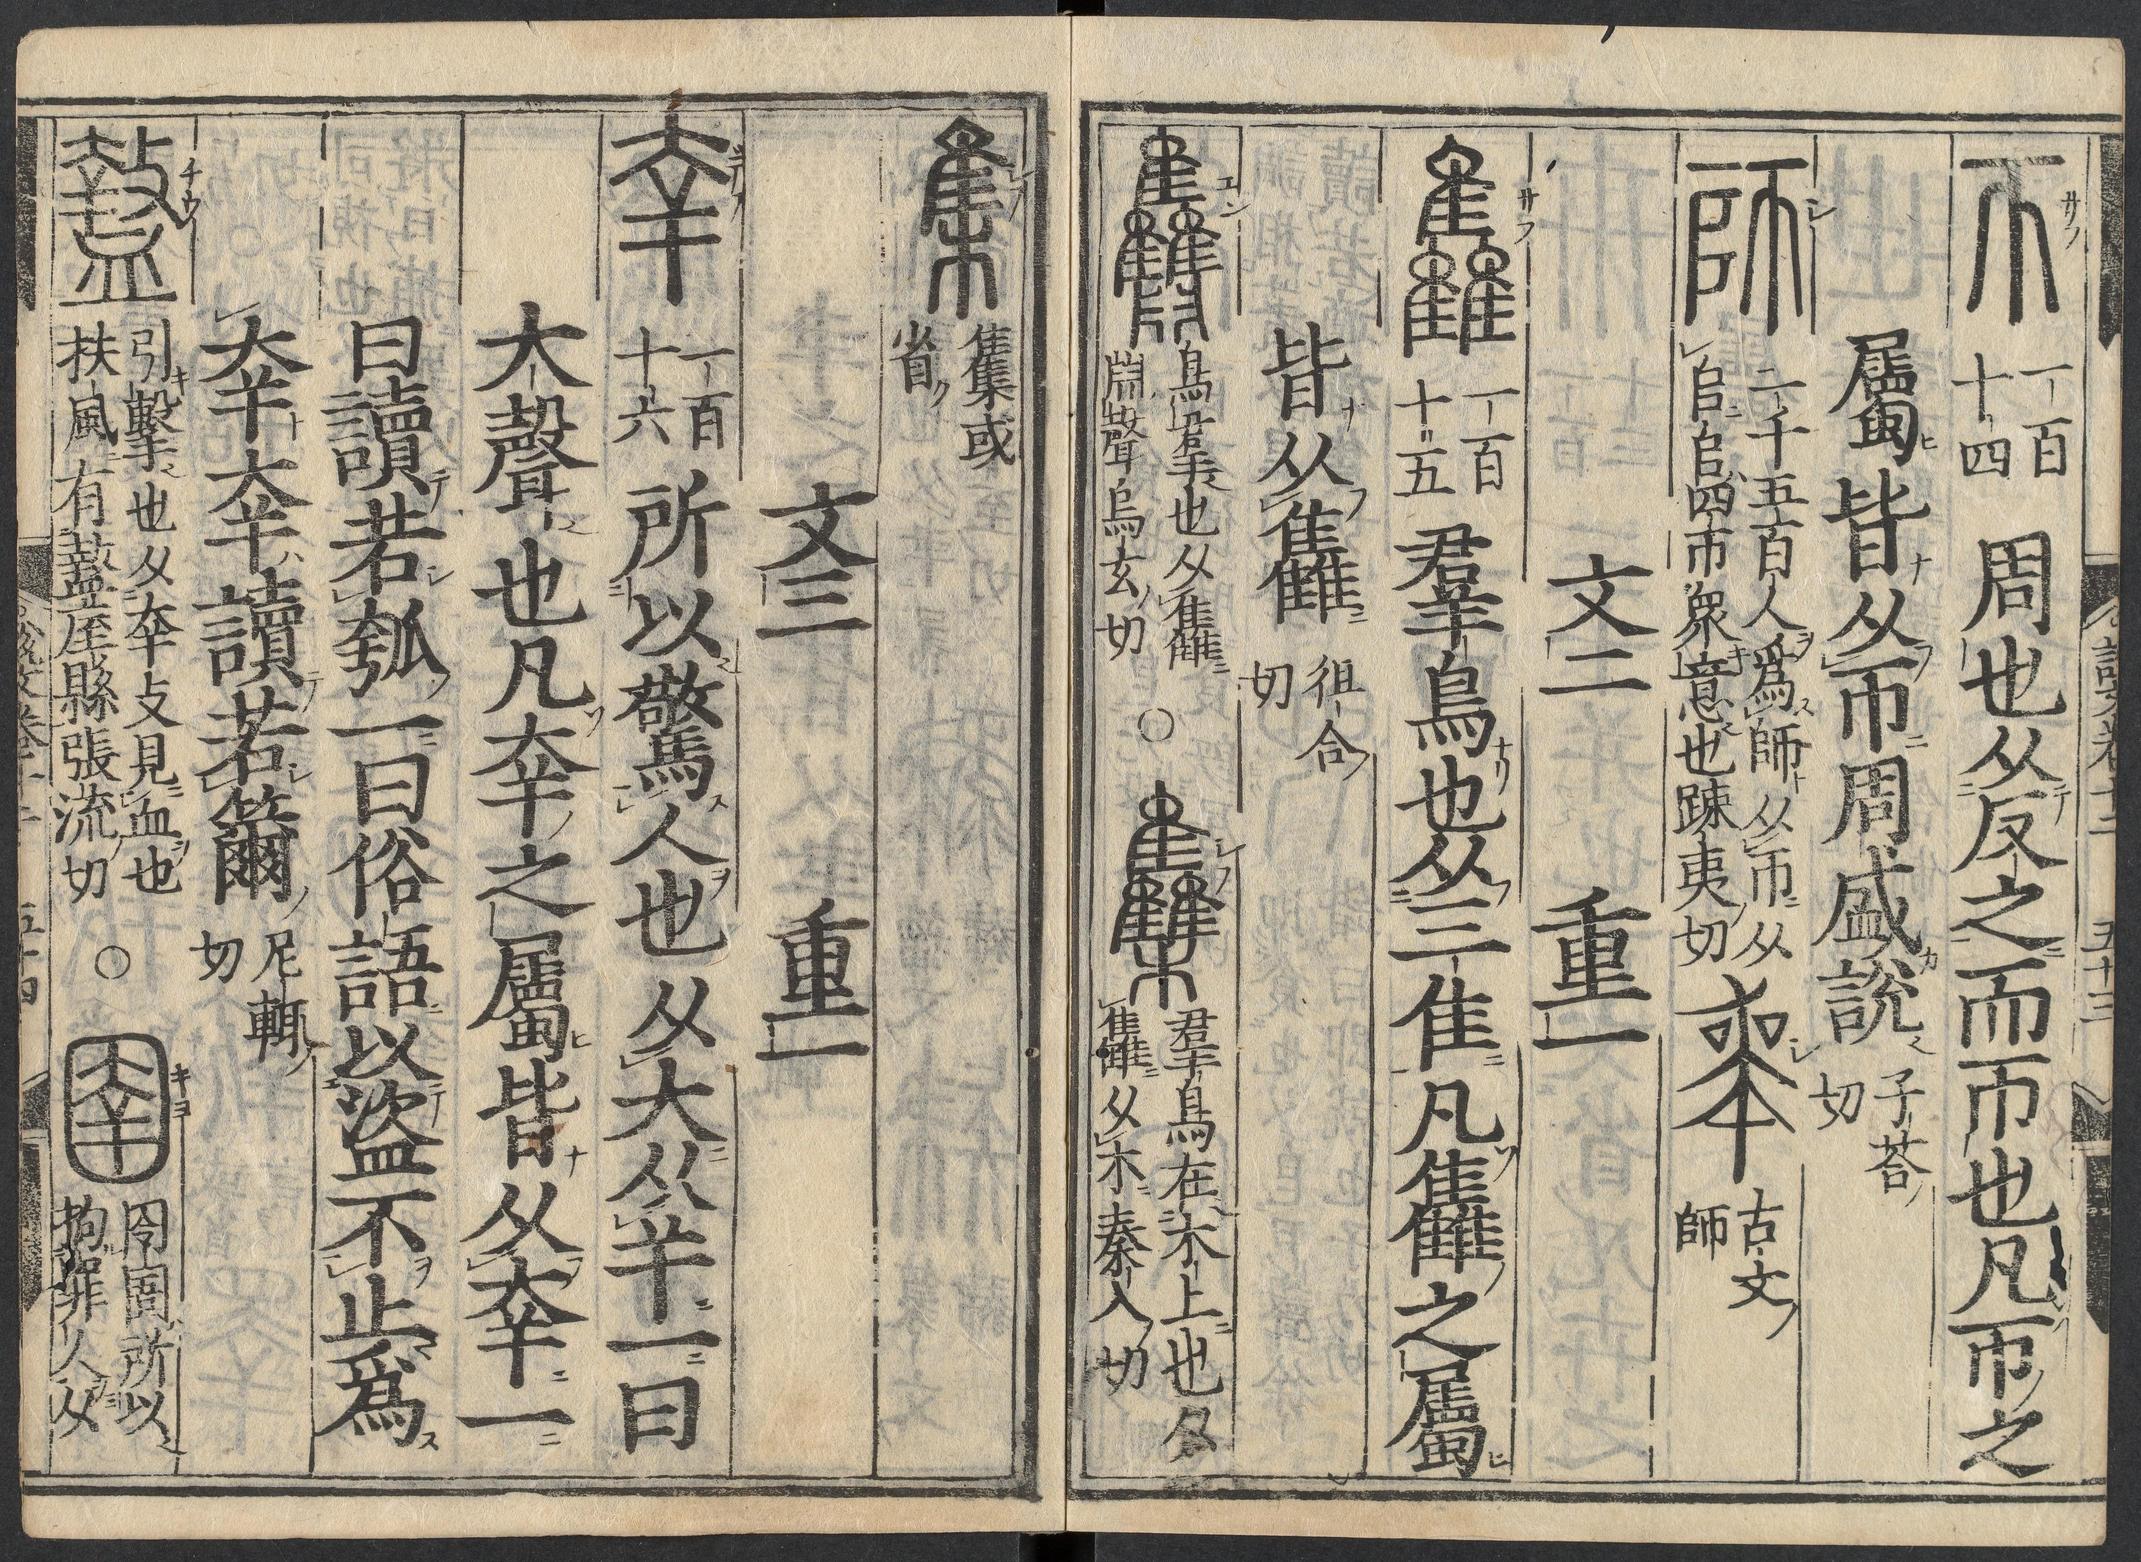 帀 一百十四 周也从反之而帀也凡帀之
屬皆从帀周盛說 子荅切
師 二千五百人爲師从帀从𠂤𠂤四帀衆意也疎夷切 𠦵 古文師
文二 重一
雥 一百十五 羣鳥也从三隹凡雥之屬
皆从雥 徂合切
鳥羣也从雥𣶒聲烏玄切 ○ 雧 羣鳥在木上也从雥从木秦入切
說文卷十二 五十三
集 雧或省
文三 重一
㚔 一百十六 所以驚人也从大从𢆉一曰
大聲也凡㚔之屬皆从㚔一
曰讀若瓠一曰俗語以盜不止爲
㚔㚔讀若籋 尼輒切
盩 引擊也从㚔攴見血也扶風有盩厔縣張流切 ○ 圉 囹圄所以拘罪人从